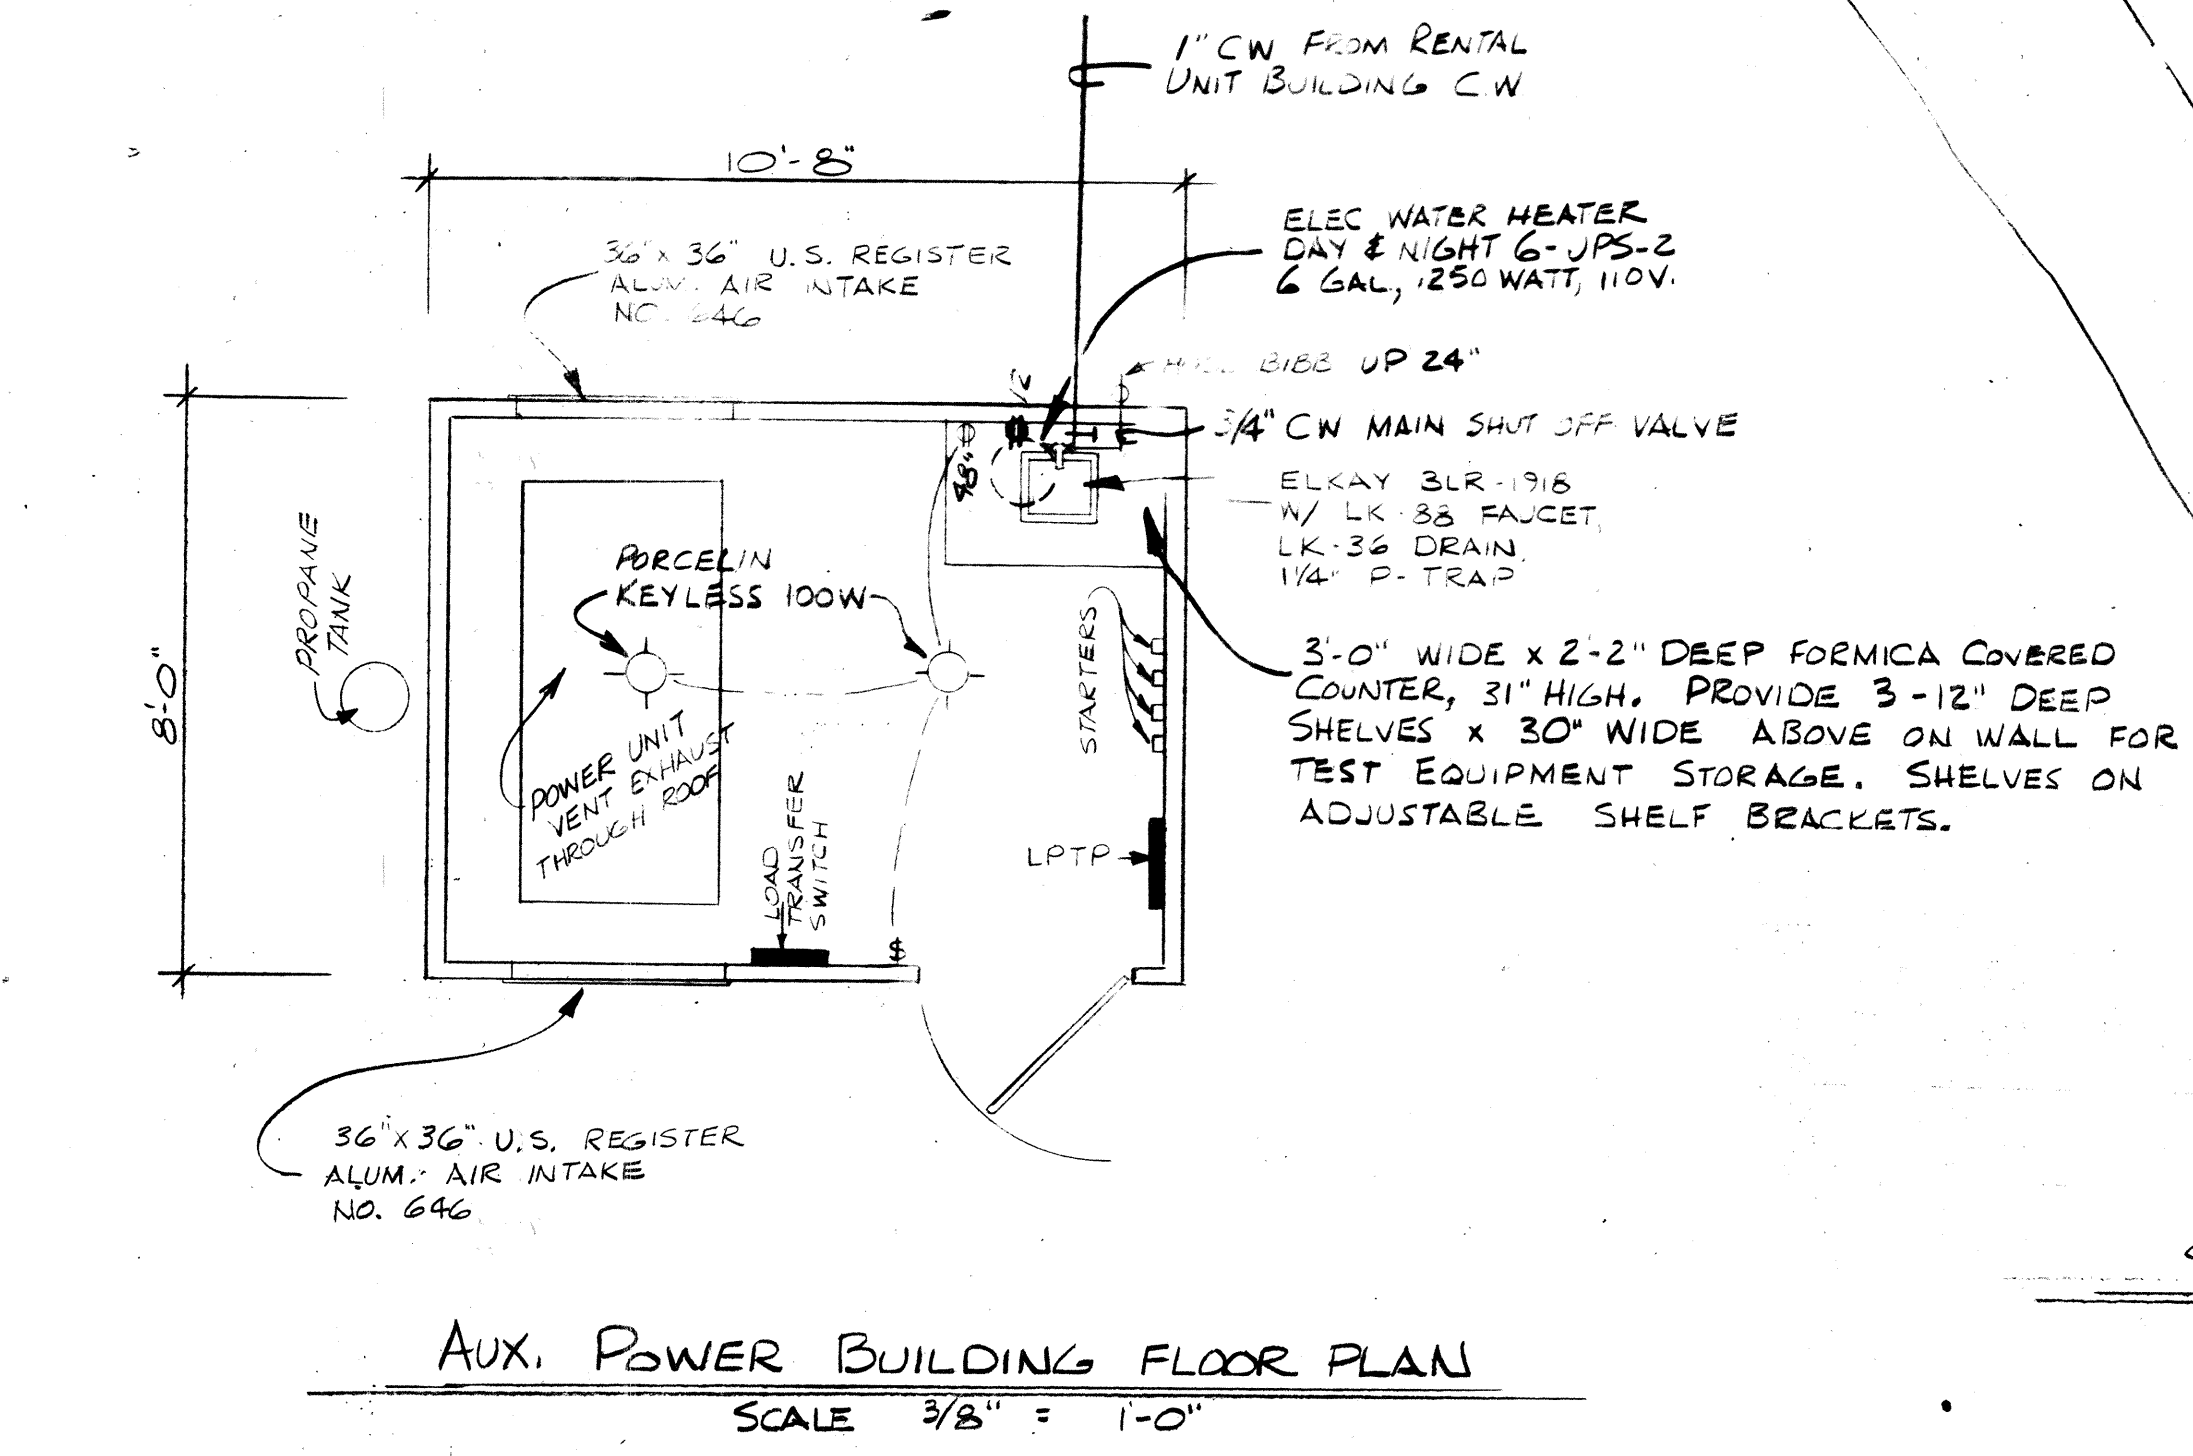 1" CW FROM RENTAL
UNIT BUILDING C.W
10'-8"
36" x 36" U.S. REGISTER
ALUM. AIR INTAKE
NO. 646
ELEC WATER HEATER
DAY & NIGHT 6-UPS-2
6 GAL., 1250 WATT, 110V.
HOSE BIBB UP 24"
3/4" CW MAIN SHUT OFF VALVE
48"
ELKAY BLR-1918
W/ LK-88 FAUCET,
LK-36 DRAIN,
1 1/4" P-TRAP
PROPANE
TANK
8'-0"
PORCELIN
KEYLESS 100W
STARTERS
3'-0" WIDE x 2'-2" DEEP FORMICA COVERED
COUNTER, 31" HIGH. PROVIDE 3-12" DEEP
SHELVES x 30" WIDE ABOVE ON WALL FOR
TEST EQUIPMENT STORAGE. SHELVES ON
ADJUSTABLE SHELF BRACKETS.
POWER UNIT
VENT EXHAUST
THROUGH ROOF
LOAD
TRANSFER
SWITCH
LPTP
$
36" x 36" U.S. REGISTER
ALUM. AIR INTAKE
NO. 646
AUX. POWER BUILDING FLOOR PLAN
SCALE 3/8" = 1'-0"